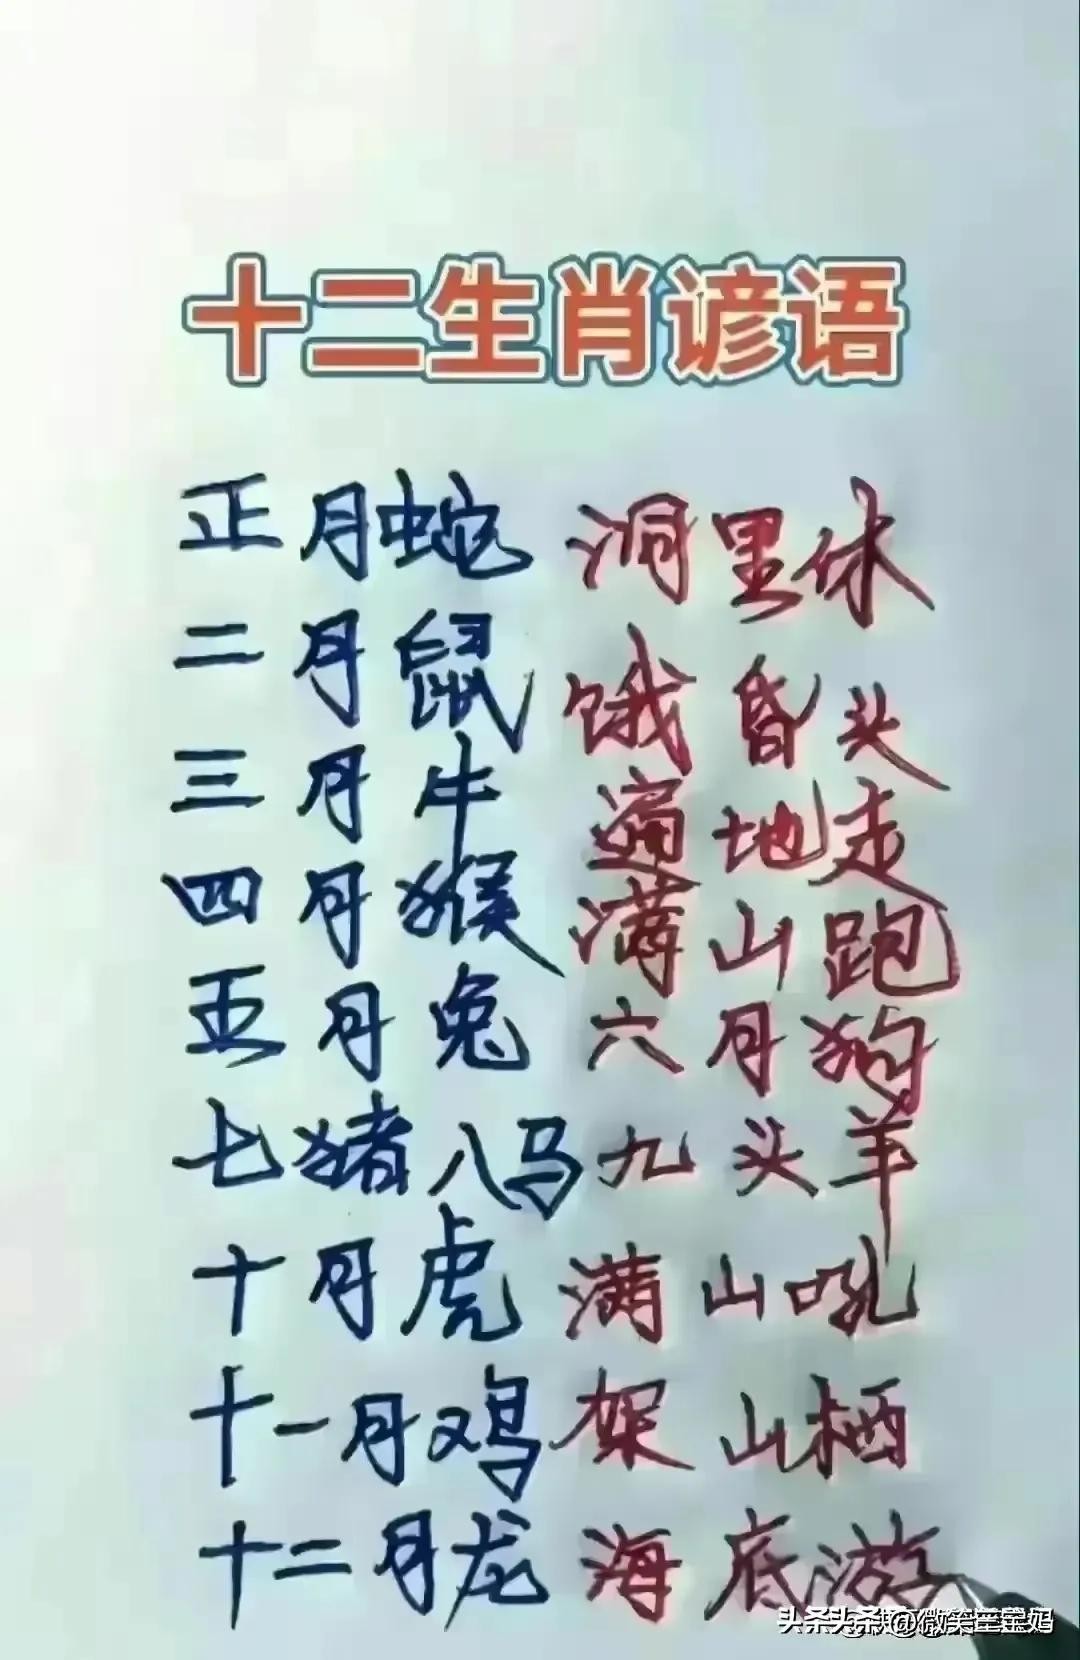 十二生肖谚语
正月蛇 洞里休
二月鼠 饿昏头
三月牛 遍地走
四月猴 满山跑
五月兔 六月狗
七猪八马九头羊
十月虎 满山吼
十一月鸡 架山栖
十二月龙 海底游
头条 @微笑